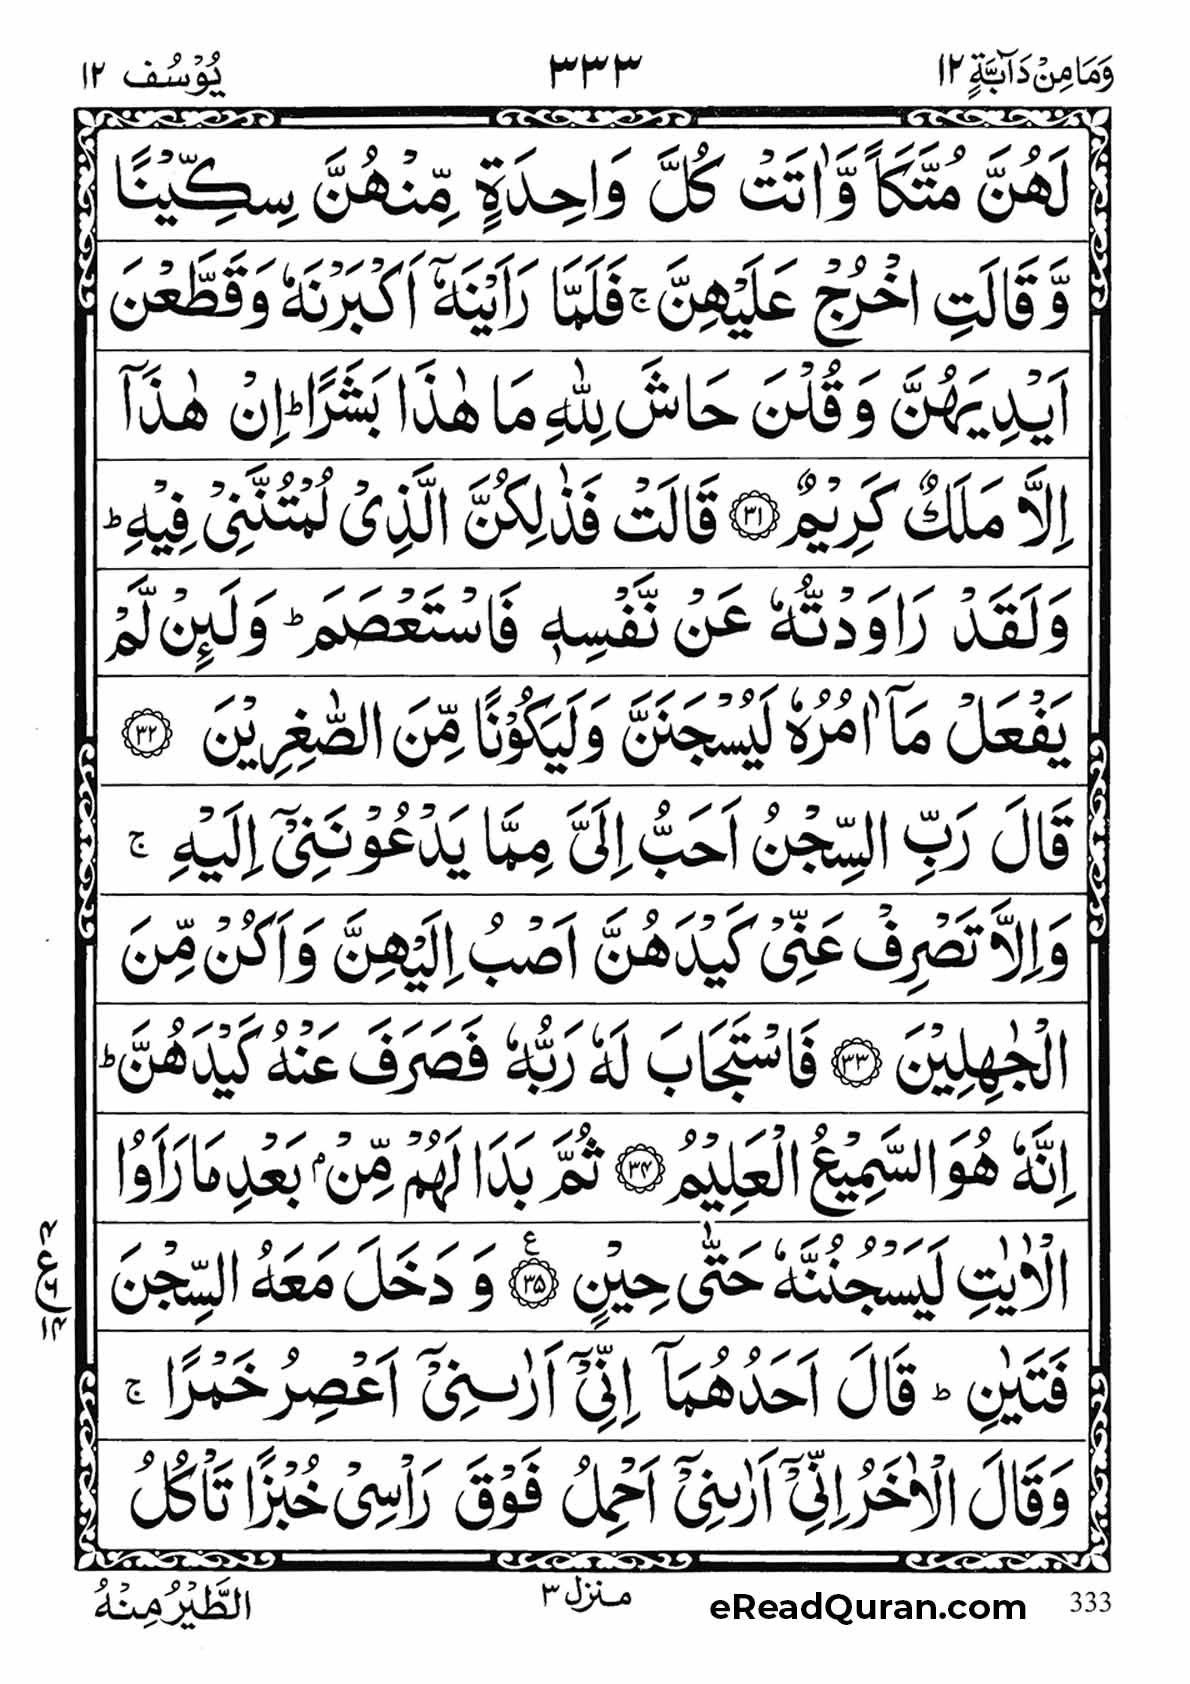 وَمَا مِنْ دَآبَّةٍ ١٢ ٣٣٣ يُوْسُف ١٢
لَهُنَّ مُتَّكَاً وَّاٰتَتْ كُلَّ وَاحِدَةٍ مِّنْهُنَّ سِكِّيْنًا
وَّقَالَتِ اخْرُجْ عَلَيْهِنَّ ۚ فَلَمَّا رَاَيْنَهٗۤ اَكْبَرْنَهٗ وَقَطَّعْنَ
اَيْدِيَهُنَّ وَقُلْنَ حَاشَ لِلّٰهِ مَا هٰذَا بَشَرًا ؕ اِنْ هٰذَاۤ
اِلَّا مَلَكٌ كَرِيْمٌ ﴿٣١﴾ قَالَتْ فَذٰلِكُنَّ الَّذِىْ لُمْتُنَّنِىْ فِيْهِ ؕ
وَلَقَدْ رَاوَدْتُّهٗ عَنْ نَّفْسِهٖ فَاسْتَعْصَمَ ؕ وَلَئِنْ لَّمْ
يَفْعَلْ مَاۤ اٰمُرُهٗ لَيُسْجَنَنَّ وَلَيَكُوْنًا مِّنَ الصّٰغِرِيْنَ ﴿٣٢﴾
قَالَ رَبِّ السِّجْنُ اَحَبُّ اِلَىَّ مِمَّا يَدْعُوْنَنِىْۤ اِلَيْهِ ۚ
وَاِلَّا تَصْرِفْ عَنِّىْ كَيْدَهُنَّ اَصْبُ اِلَيْهِنَّ وَاَكُنْ مِّنَ
الْجٰهِلِيْنَ ﴿٣٣﴾ فَاسْتَجَابَ لَهٗ رَبُّهٗ فَصَرَفَ عَنْهُ كَيْدَهُنَّ ؕ
اِنَّهٗ هُوَ السَّمِيْعُ الْعَلِيْمُ ﴿٣٤﴾ ثُمَّ بَدَا لَهُمْ مِّنْۢ بَعْدِ مَا رَاَوُا
الْاٰيٰتِ لَيَسْجُنُنَّهٗ حَتّٰى حِيْنٍ ﴿٣٥﴾ ع وَدَخَلَ مَعَهُ السِّجْنَ
٤
ع ٦
١٤
فَتَيٰنِ ؕ قَالَ اَحَدُهُمَاۤ اِنِّىْۤ اَرٰىنِىْۤ اَعْصِرُ خَمْرًا ۚ
وَقَالَ الْاٰخَرُ اِنِّىْۤ اَرٰىنِىْۤ اَحْمِلُ فَوْقَ رَاْسِىْ خُبْزًا تَاْكُلُ
الطَّيْرُ مِنْهُ
منزل ٣
eReadQuran.com
333